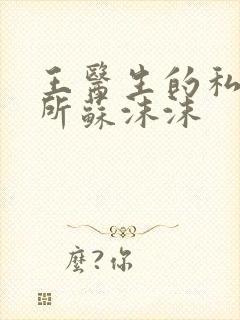 王醫生的私
所蘇沫沫
麼?你